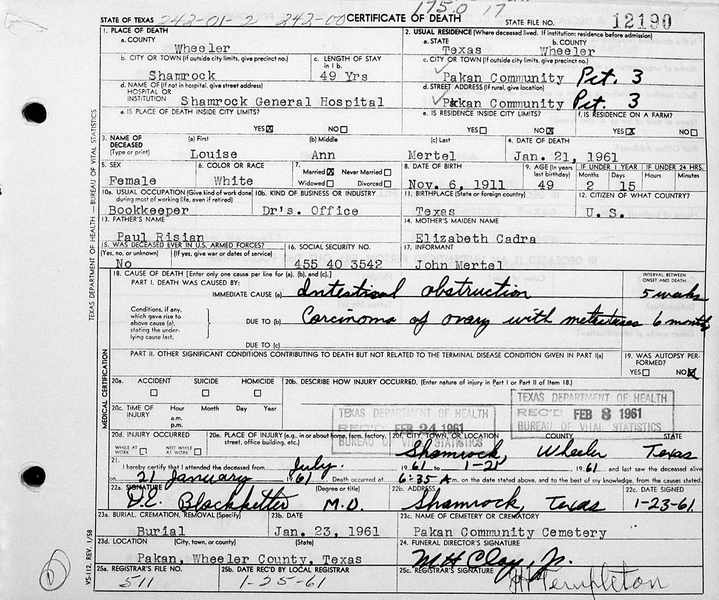 1750 17
STATE OF TEXAS 242-01-2 242-00 CERTIFICATE OF DEATH STATE FILE NO. 12190
1. PLACE OF DEATH
a. COUNTY
Wheeler
2. USUAL RESIDENCE (Where deceased lived. If institution: residence before admission)
a. STATE b. COUNTY
Texas Wheeler
b. CITY OR TOWN (If outside city limits, give precinct no.) c. LENGTH OF STAY in 1 b.
Shamrock 49 Yrs
c. CITY OR TOWN (If outside city limits, give precinct no.)
Pakan Community Pct. 3
d. NAME OF (If not in hospital, give street address) HOSPITAL OR INSTITUTION
Shamrock General Hospital
d. STREET ADDRESS (If rural, give location)
Pakan Community Pct. 3
e. IS PLACE OF DEATH INSIDE CITY LIMITS?
YES NO
e. IS RESIDENCE INSIDE CITY LIMITS? f. IS RESIDENCE ON A FARM?
YES NO YES NO
3. NAME OF DECEASED (Type or print) (a) First (b) Middle (c) Last 4. DATE OF DEATH
Louise Ann Mertel Jan. 21, 1961
5. SEX 6. COLOR OR RACE 7. Married Never Married Widowed Divorced
Female White
8. DATE OF BIRTH 9. AGE (In years last birthday) IF UNDER 1 YEAR Months Days IF UNDER 24 HRS. Hours Minutes
Nov. 6, 1911 49 2 15
10a. USUAL OCCUPATION (Give kind of work done during most of working life, even if retired) 10b. KIND OF BUSINESS OR INDUSTRY
Bookkeeper Dr's. Office
11. BIRTHPLACE (State or foreign country) 12. CITIZEN OF WHAT COUNTRY?
Texas U. S.
13. FATHER'S NAME
Paul Risian
14. MOTHER'S MAIDEN NAME
Elizabeth Cadra
15. WAS DECEASED EVER IN U.S. ARMED FORCES? (Yes, no, or unknown) (If yes, give war or dates of service)
No
16. SOCIAL SECURITY NO.
455 40 3542
17. INFORMANT
John Mertel
18. CAUSE OF DEATH [Enter only one cause per line for (a), (b), and (c).] INTERVAL BETWEEN ONSET AND DEATH
PART I. DEATH WAS CAUSED BY:
IMMEDIATE CAUSE (a) Intestinal obstruction 5 weeks
Conditions, if any, which gave rise to above cause (a), stating the underlying cause last.
DUE TO (b) Carcinoma of ovary with metastases 6 months
DUE TO (c)
PART II. OTHER SIGNIFICANT CONDITIONS CONTRIBUTING TO DEATH BUT NOT RELATED TO THE TERMINAL DISEASE CONDITION GIVEN IN PART I(a)
19. WAS AUTOPSY PERFORMED?
YES NO
20a. ACCIDENT SUICIDE HOMICIDE
20b. DESCRIBE HOW INJURY OCCURRED. (Enter nature of injury in Part I or Part II of Item 18.)
20c. TIME OF INJURY Hour Month Day Year
a.m.
p.m.
TEXAS DEPARTMENT OF HEALTH
REC'D FEB 24 1961
BUREAU OF VITAL STATISTICS
TEXAS DEPARTMENT OF HEALTH
REC'D FEB 8 1961
BUREAU OF VITAL STATISTICS
20d. INJURY OCCURRED WHILE AT WORK NOT WHILE AT WORK
20e. PLACE OF INJURY (e.g., in or about home, farm, factory, street, office building, etc.)
20f. CITY, TOWN, OR LOCATION COUNTY STATE
Shamrock, Wheeler Texas
21. I hereby certify that I attended the deceased from July 1961 to 1-21 1961 and last saw the deceased alive
on 21 January 1961. Death occurred at 6:35 A m. on the date stated above, and to the best of my knowledge, from the causes stated.
22a. SIGNATURE (Degree or title)
H.E. Blackketter M.D.
22b. ADDRESS
Shamrock, Texas
22c. DATE SIGNED
1-23-61
23a. BURIAL, CREMATION, REMOVAL (Specify) 23b. DATE
Burial Jan. 23, 1961
23c. NAME OF CEMETERY OR CREMATORY
Pakan Community Cemetery
23d. LOCATION (City, town, or county) (State)
Pakan, Wheeler County, Texas
24. FUNERAL DIRECTOR'S SIGNATURE
M H Clay, Jr.
25a. REGISTRAR'S FILE NO. 25b. DATE REC'D BY LOCAL REGISTRAR
511 1-25-61
25c. REGISTRAR'S SIGNATURE
Templeton
TEXAS DEPARTMENT OF HEALTH — BUREAU OF VITAL STATISTICS
MEDICAL CERTIFICATION
VS-112, REV. 1/58